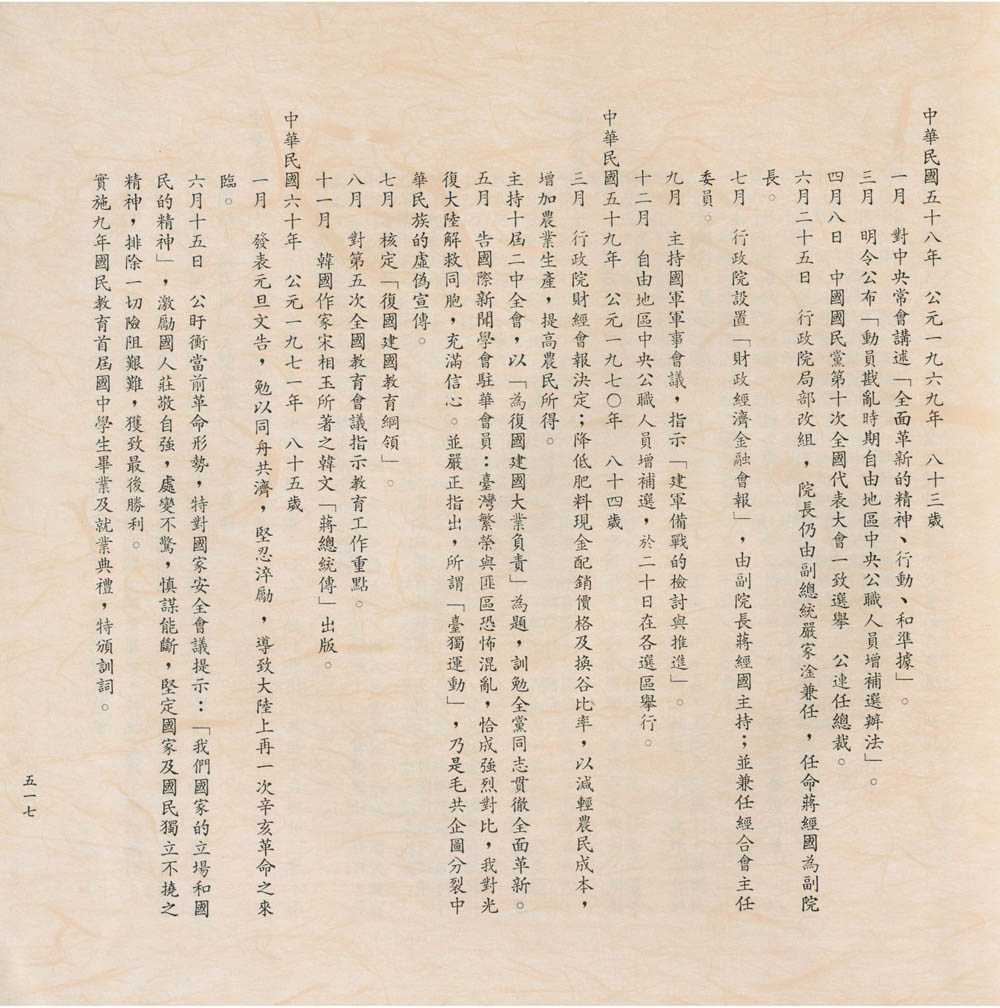 中華民國五十八年　公元一九六九年　八十三歲
一月　對中央常會講述「全面革新的精神、行動、和準據」。
三月　明令公布「動員戡亂時期自由地區中央公職人員增補選辦法」。
四月八日　中國國民黨第十次全國代表大會一致選舉　公連任總裁。
六月二十五日　行政院局部改組，院長仍由副總統嚴家淦兼任，任命蔣經國為副院
長。
七月　行政院設置「財政經濟金融會報」，由副院長蔣經國主持；並兼任經合會主任
委員。
九月　主持國軍軍事會議，指示「建軍備戰的檢討與推進」。
十二月　自由地區中央公職人員增補選，於二十日在各選區舉行。
中華民國五十九年　公元一九七〇年　八十四歲
三月　行政院財經會報決定；降低肥料現金配銷價格及換谷比率，以減輕農民成本，
增加農業生產，提高農民所得。
主持十屆二中全會，以「為復國建國大業負責」為題，訓勉全黨同志貫徹全面革新。
五月　告國際新聞學會駐華會員：臺灣繁榮與匪區恐怖混亂，恰成強烈對比，我對光
復大陸解救同胞，充滿信心。並嚴正指出，所謂「臺獨運動」，乃是毛共企圖分裂中
華民族的虛偽宣傳。
七月　核定「復國建國教育綱領」。
八月　對第五次全國教育會議指示教育工作重點。
十一月　韓國作家宋相玉所著之韓文「蔣總統傳」出版。
中華民國六十年　公元一九七一年　八十五歲
一月　發表元旦文告，勉以同舟共濟，堅忍淬勵，導致大陸上再一次辛亥革命之來
臨。
六月十五日　公盱衡當前革命形勢，特對國家安全會議提示：「我們國家的立場和國
民的精神」，激勵國人莊敬自強，處變不驚，慎謀能斷，堅定國家及國民獨立不撓之
精神，排除一切險阻艱難，獲致最後勝利。
實施九年國民教育首屆國中學生畢業及就業典禮，特頒訓詞。
五一七